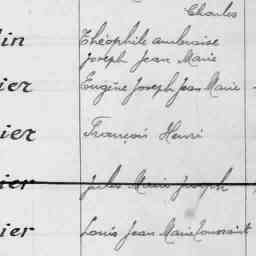 Charles
lin Théophile Ambroise
Joseph Jean Marie
ier Eugène Joseph Jean Marie
ier François Henri
ier Jules Marie Joseph
ier Louis Jean Marie Toussaint